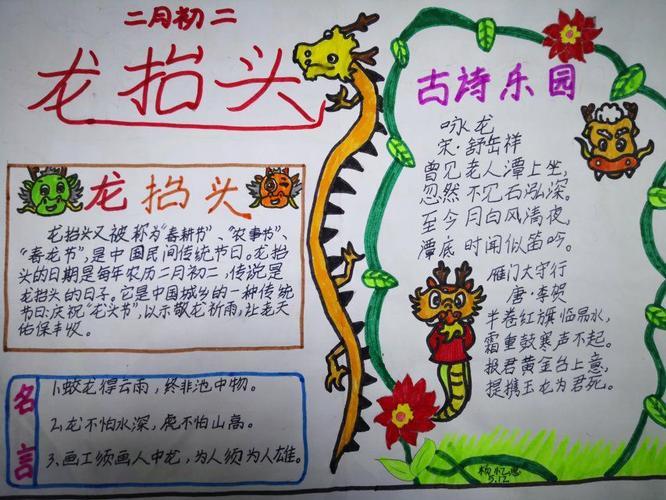 二月初二
龙抬头
龙抬头
龙抬头又被称为“春耕节”、“农事节”、
“春龙节”,是中国民间传统节日。龙抬
头的日期是每年农历二月初二,传说是
龙抬头的日子。它是中国城乡的一种传统
节日:庆祝“龙头节”,以示敬龙祈雨,让老天
佑保丰收。
名言
1.蛟龙得云雨,终非池中物。
2.龙不怕水深,虎不怕山高。
3.画工须画人中龙,为人须为人雄。
古诗乐园
咏龙
宋·舒岳祥
曾见老人潭上坐,
忽然不见石泓深。
至今月白风清夜,
潭底时闻似笛吟。
雁门太守行
唐·李贺
半卷红旗临易水,
霜重鼓寒声不起。
报君黄金台上意,
提携玉龙为君死。
5.12